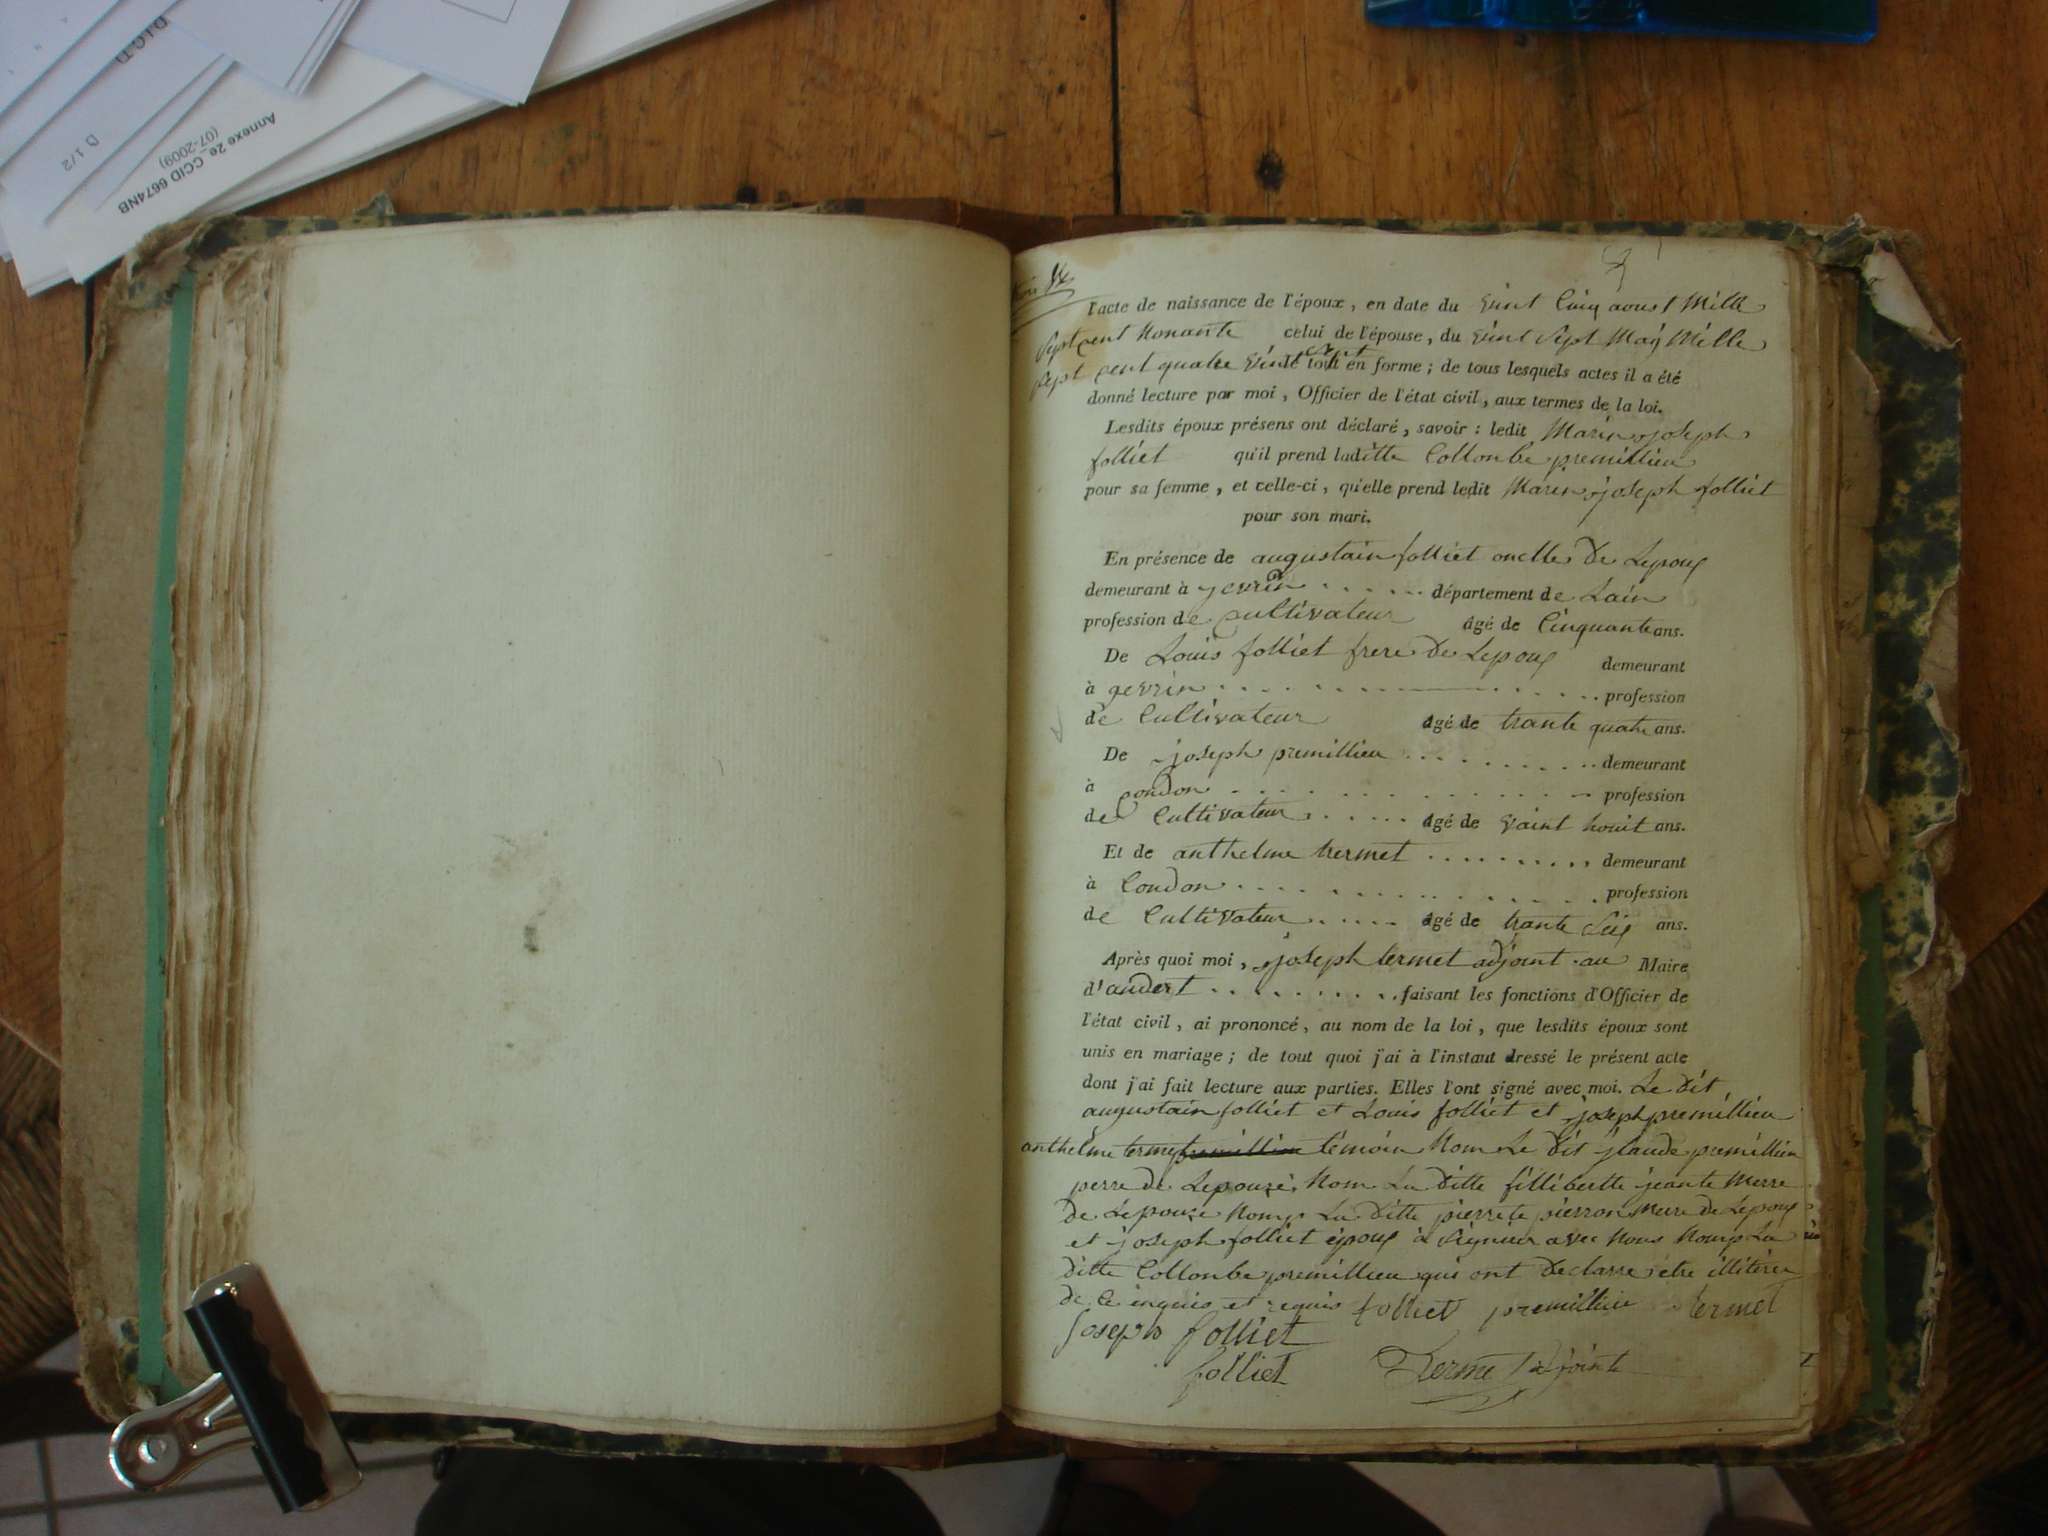 D.I.C.T.
D 1/2
Annexe 2e_CCID 6674NB
(07-2009)
l'acte de naissance de l'époux, en date du vint Cinq aoust Mille
Sept cent Nonante celui de l'épouse, du vint Sept May Mille
Sept cent quatre vint le tout en forme ; de tous lesquels actes il a été
donné lecture par moi, Officier de l'état civil, aux termes de la loi.
Lesdits époux présens ont déclaré, savoir : ledit Marin joseph
folliet qu'il prend laditte Collonbe premillieu
pour sa femme, et celle-ci, qu'elle prend ledit Marin joseph folliet
pour son mari.
En présence de augustain folliet onclle De Lepoux
demeurant à yevrin département de Lain
profession de cultivateur âgé de Cinquante ans.
De Louis folliet frere De Lepoux demeurant
à gevrin profession
de Cultivateur âgé de trante quatre ans.
De joseph premillieu demeurant
à Condon profession
de Cultivateur âgé de vaint houit ans.
Et de anthelme termet demeurant
à Condon profession
de Cultivateur âgé de trante Six ans.
Après quoi moi, joseph termet adjoint au Maire
d'andert faisant les fonctions d'Officier de
l'état civil, ai prononcé, au nom de la loi, que lesdits époux sont
unis en mariage ; de tout quoi j'ai à l'instaut dressé le présent acte
dont j'ai fait lecture aux parties. Elles l'ont signé avec moi. Le Dit
augustain folliet et Louis folliet et joseph premillieu
anthelme termet témoin Nom Le Dit glaude premillieu
perre de Lepouze Nom La Ditte fillibertte jeante Merre
de Lépouze Nomp La Ditte pierrete pierron Mere de Lépoux
et joseph folliet époux a Signier avec Nous Nomp La
ditte Collonbe premillieu qui ont Declarre être illitérer
de ce enquis et requis folliet premillieu termet
Joseph folliet
folliet Termet adjoint